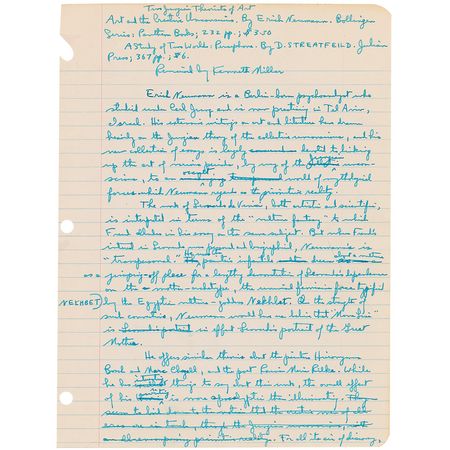 Two Jungian Theorists of Art
Art and the Creative Unconscious. By Erich Neumann. Bollingen
Series: Pantheon Books; 232 pp.; $3.50
A Study of Two Worlds: Persephone. By D. STREATFEILD. Julian
Press; 367 pp.; $6.
Reviewed by Kenneth Millar
Erich Neumann is a Berlin-born psychoanalyst who
studied under Carl Jung and is now practicing in Tel Aviv,
Israel. His extensive writings on art and literature have drawn
heavily on the Jungian theory of the collective unconscious, and his
new collection of essays is largely devoted to linking
up the art of various periods, by way of the
science, to world of mythological
forces which Neumann regards as the primitive reality.
The work of Leonardo da Vinci, both artistic and scientific,
is interpreted in terms of the "vulture fantasy" to which
Freud alludes in his essay on the same subject. But where Freud's
interest in Leonardo was personal and biographical, Neumann's is
"transpersonal"
as a jumping-off place for a lengthy demonstration of Leonardo's dependence
on the mother-archetype, the numinal feminine force typified
NEKHBET by the Egyptian vulture-goddess Nekhbet. On the strength of
such connections, Neumann would have us believe that "Mona Lisa"
is in effect Leonardo's portrait of the Great
Mother.
He offers similar theories about the painters Hieronymus
Bosch and Marc Chagall, and the poet Rainer Maria Rilke. While
he has things to say about this work, the overall effect
of his is more apocalyptic than illuminating. They
seem to boil down to the notion that the creative men of all
eras are in touch, through the Jungian unconscious, with
primitive reality. For all its air of discovery,